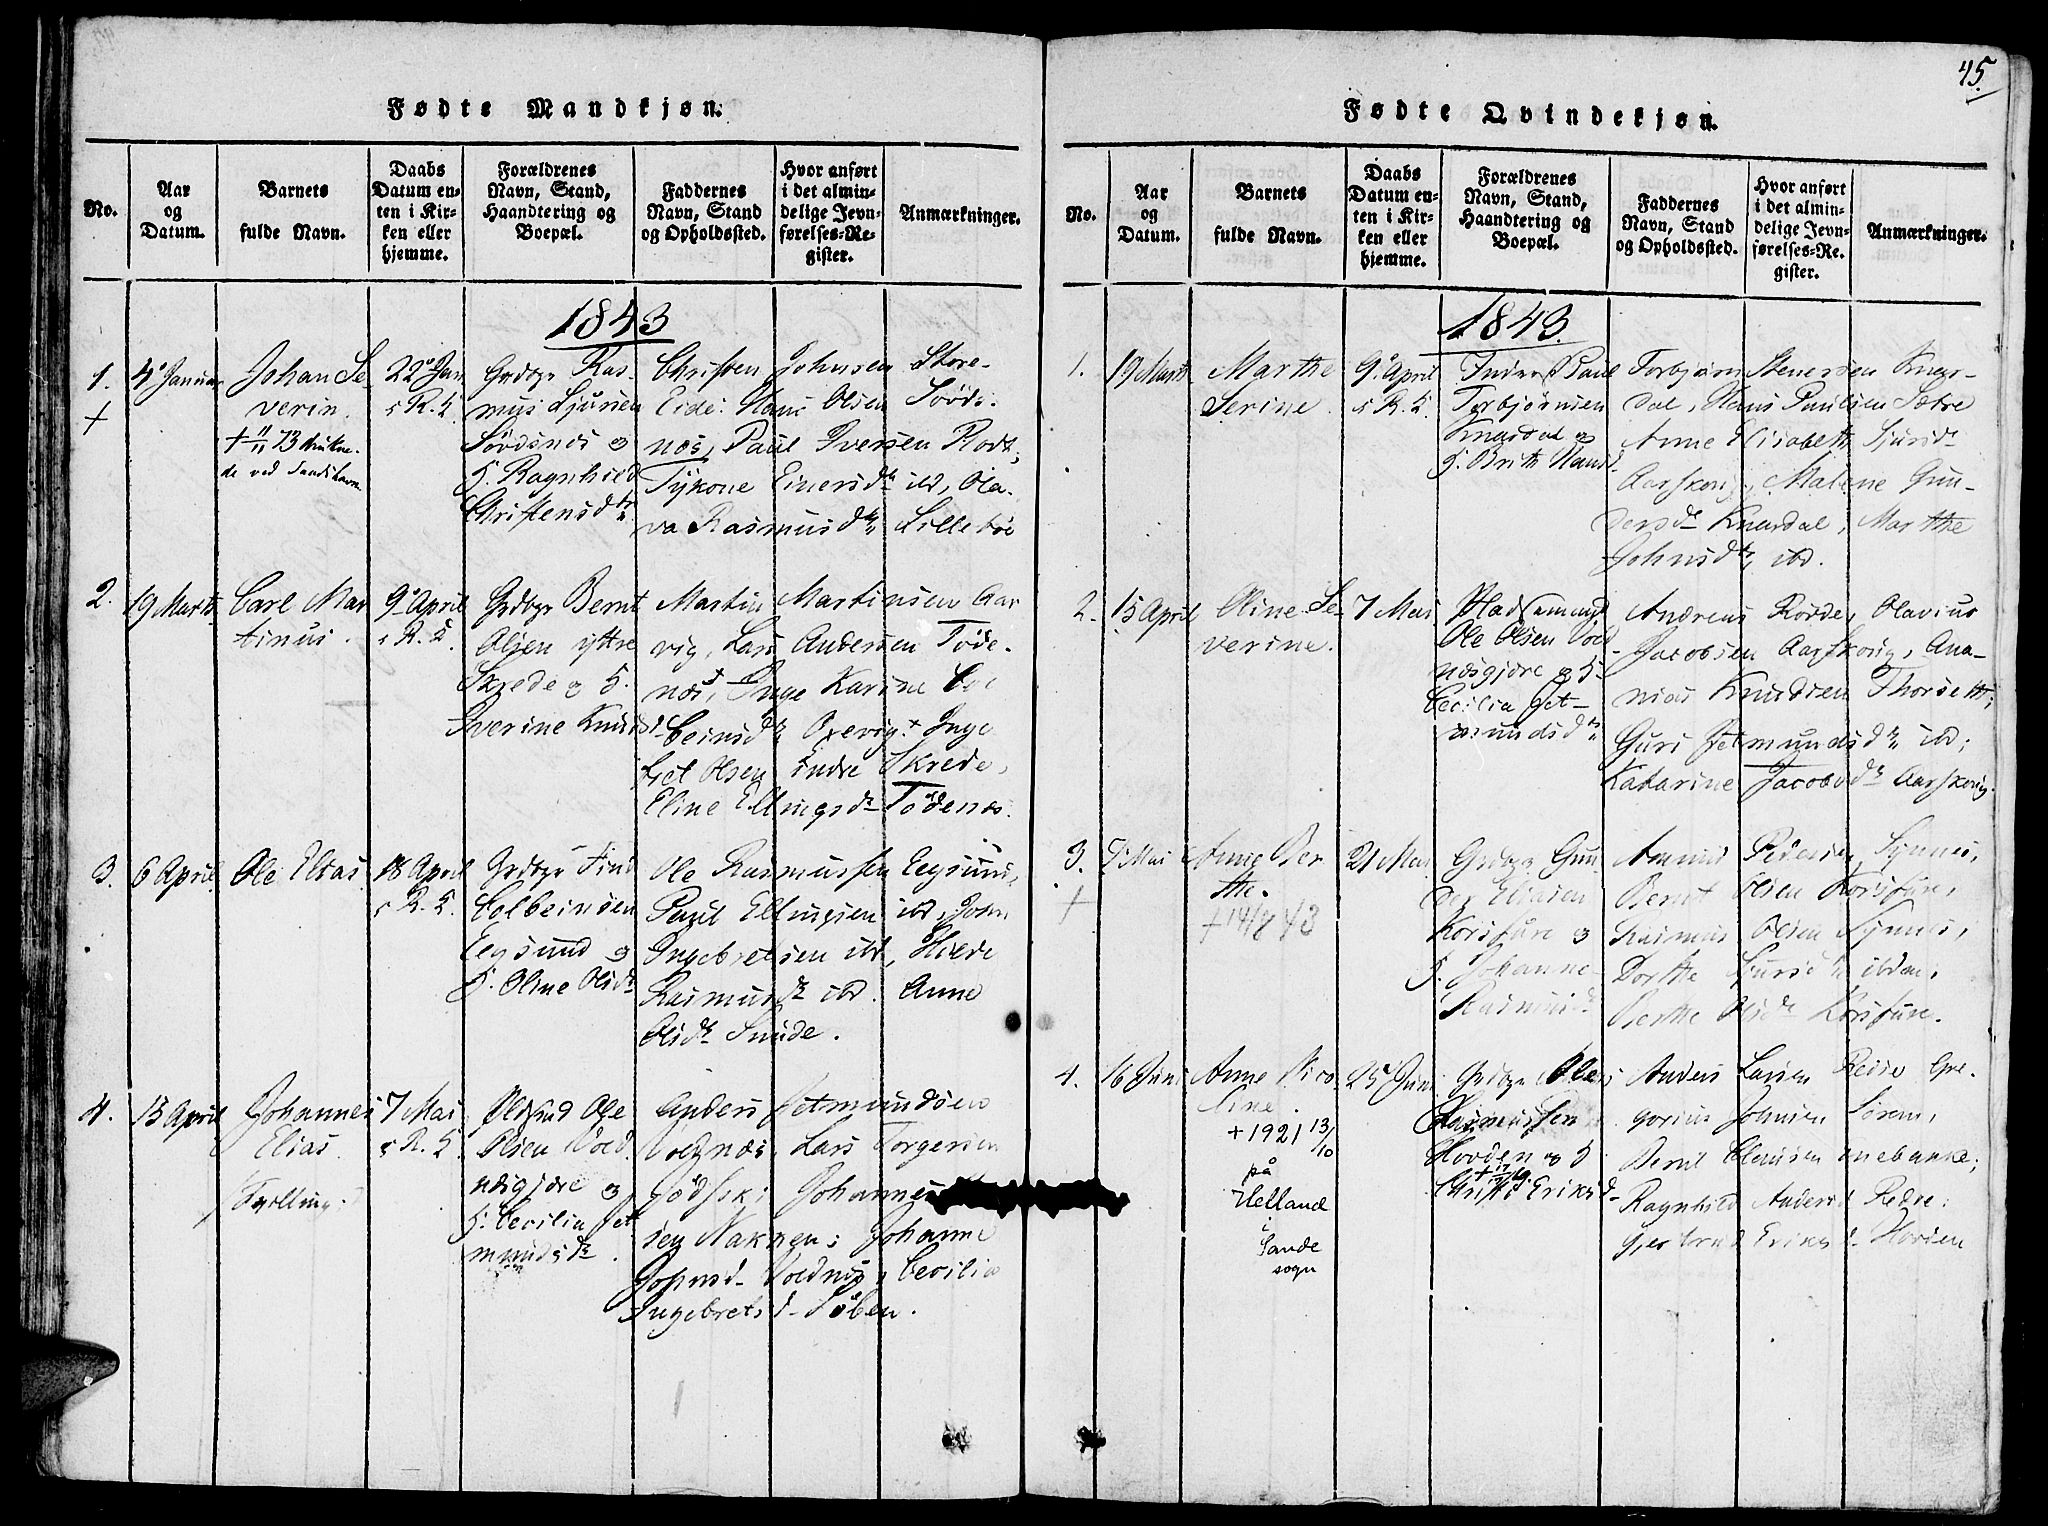 45.
Fødte Mandkjøn.
No.
Aar
og
Datum.
Barnets
fulde Navn.
Daabs
Datum en-
ten i Kir-
ken eller
hjemme.
Forældrenes
Navn, Stand,
Haandtering og
Boepæl.
Faddernes
Navn, Stand
og Opholdssted.
Hvor anført
i det almin-
delige Jevn-
førelses-Re-
gister.
Anmærkninger.
1843
1.
+
4 Januar
Johan Se-
verin.
+ 11/11 73 drukne-
de ved Sandshavn
22 Jan
R. K.
Grdbgr Ras-
mus Sjursen
Sövdsnes og
K. Ragnhild
Christensdtr
Christen Johnsen Store-
Eide: Hans Olsen Sövds-
nes, Paul Iversen Rodt;
Einersdtr ibd, Ola-
va Rasmusdtr Lilleböe
2.
19 Marts
Carl Mar
tinus.
9 April
R. K.
Grdbgr Bernt
Olsen ystre
Skrede og K.
Iverine Knuds
Martin Martinsen Aar
vig, Lars Andersen Töde-
nes, Inge Karine Col
beinsdtr Orevig + Inge
bret Olsen indre Skrede,
Eline Ellingsdtr Tödenes.
3.
6 April
Ole Elias.
18 April
R. K.
Grdbgr Find
Colbeinsen
Eegsund og
K. Oline Olsdtr
Ole Rasmussen Eegsund,
Paul Ellingsen ibd, John
Ingebretsen ibd, Hilde
Rasmusdtr ibd. Anne
Olsdtr Sunde.
4.
15 April
Johannes
Elias.
Tvilling
7 Mai
R. K.
Pldsmd Ole
Olsen Vold
nesgjære og
K. Cecilia Jet
mundsdtr.
Anders Jetmundsen
Voldnes, Lars Torgersen
Johannes
sen Nakken; Johanne
Johnsd- Voldnes, Cecilia
Ingebretsd- Löben.
Fødte Qvindekjøn.
No.
Aar
og
Datum.
Barnets
fulde Navn.
Daabs
Datum en-
ten i Kir-
ken eller
hjemme.
Forældrenes
Navn, Stand,
Haandtering og
Boepæl.
Faddernes
Navn, Stand
og Opholdssted.
Hvor anført
i det almin-
delige Jevn-
førelses-Re-
gister.
Anmærkninger.
1843.
1.
19 Marts
Marthe
Serine
9 April
R. K.
Paul
Torbjörnsen
Knardal og
K. Brith Hansd
Torbjörn Stenersen Knar-
dal, Hans Paulsen Sætre
Anne Elisabeth Sjursdtr
Aarskoug, Malene Gun-
dersdtr Knardal, Marthe
Johnsdtr ibd.
2.
15 April
Oline Se-
verine.
7 Mai
Pladsmand
Ole Olsen Vold
nesgjære og K.
Cecilia Jet-
mundsdtr
Andreas Rödde, Olavius
Jacobsen Aarskoug, Ana-
nias Knudsen Thorseth;
Guri Jetmundsdtr ibd;
Katarine Jacobsdtr Aarskoug.
3.
+
7 Mai
Anne Ber
the.
+14/8 43
21 Mai
Grdbgr Gun
der Eliasen
Korsfure og
K. Johanne
Rasmusd.
Amund Pedersen Synnes,
Bernt Olsen Korsfure,
Rasmus Olsen Synnes,
Dorthe Sjursdtr ibdm;
Berthe Olsdtr Korsfure.
4.
16 Juni
Anne Nico
line.
+ 1921 13/10
på
Helland
i
Sande
sogn
25 Juni
Grdbgr Ole
Rasmussen
Hovden og K
Eriksd-
Anders Larsen Redse Gre-
gorius Johnsen Sörem,
Bernt Clausen
Ragnhild Andersd Redse;
Gjertrud Eriksd- Hovden